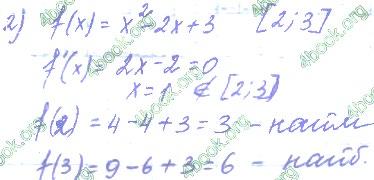 2) f(x) = x² - 2x + 3 [2; 3]
f'(x) = 2x - 2 = 0
x = 1 ∉ [2; 3]
f(2) = 4 - 4 + 3 = 3 - наим
f(3) = 9 - 6 + 3 = 6 - наиб.